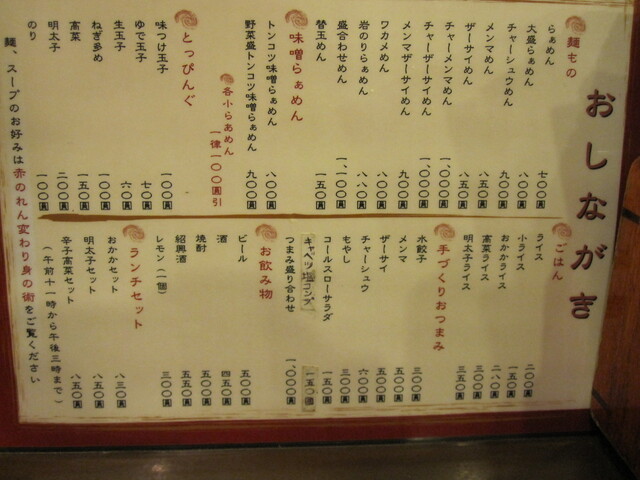 おしながき
麺もの
らぁめん 七〇〇円
大盛らぁめん 八〇〇円
チャーシュウめん 九〇〇円
メンマめん 八五〇円
ザーサイめん 八五〇円
チャーメンマめん 一、〇〇〇円
チャーザーサイめん 一、〇〇〇円
メンマザーサイめん 九〇〇円
ワカメめん 八〇〇円
岩のりらぁめん 八八〇円
盛合わせめん 一、一〇〇円
替玉めん 一五〇円
味噌らぁめん
トンコツ味噌らぁめん 八〇〇円
野菜盛トンコツ味噌らぁめん 九〇〇円
各小らぁめん
一律一〇〇円引
とっぴんぐ
味つけ玉子 一〇〇円
ゆで玉子 七〇円
生玉子 六〇円
ねぎ多め 一〇〇円
高菜 一五〇円
明太子 二〇〇円
のり 一〇〇円
ごはん
ライス 二〇〇円
小ライス 一五〇円
おかかライス 二八〇円
高菜ライス 三〇〇円
明太子ライス 三五〇円
手づくりおつまみ
水餃子 三〇〇円
メンマ 五〇〇円
ザーサイ 五〇〇円
チャーシュウ 六〇〇円
もやし 三〇〇円
コールスローサラダ 一五〇円
キャベツ塩コンブ 一五〇円
つまみ盛り合わせ 一、〇〇〇円
お飲み物
ビール 五〇〇円
酒 四五〇円
焼酎 五五〇円
紹興酒 五五〇円
レモン(一個) 三〇〇円
ランチセット
おかかセット 八三〇円
明太子セット 八五〇円
辛子高菜セット 八五〇円
(午前十一時から午後三時まで)
麺、スープのお好みは赤のれん変わり身の術をご覧ください